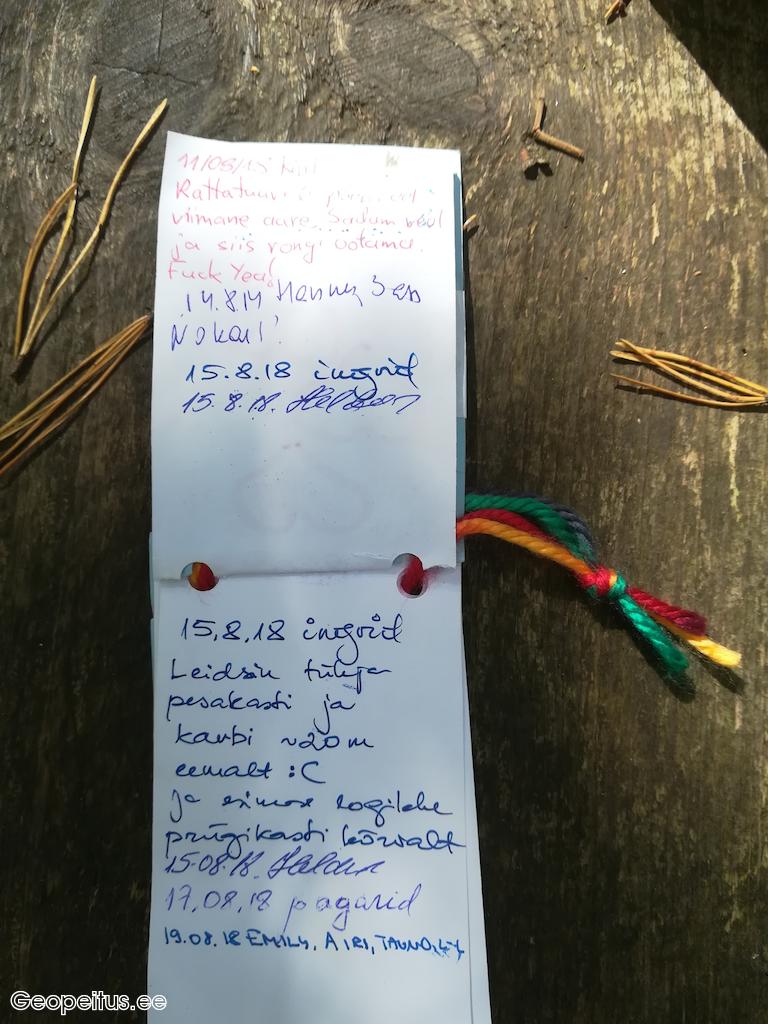 11/08/18
Rattatuur
viimane aare. Sadam veel
ja siis rongi ootama.
Fuck Yea!
14.8.14 Hannes
15.8.18 ingrid
15.8.18.
15.8.18 ingrid
Leidsin tühja
pesakasti ja
karbi ~20m
eemalt :C
ja esimese logilehe
prügikasti kõrvalt
15.08.18.
17.08.18 pagarid
19.08.18 EMILY, AIRI, TAUNO,
Geopeitus.ee